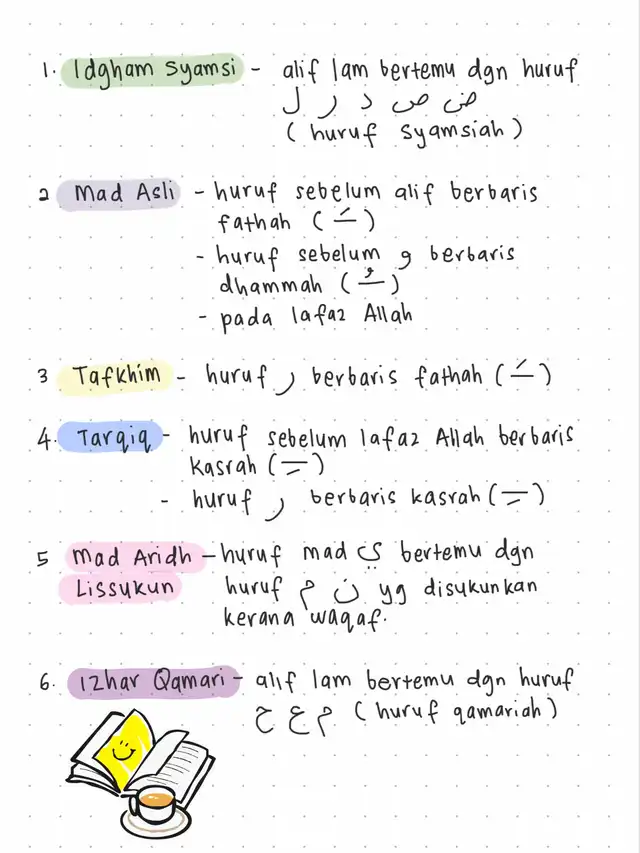 1. Idgham Syamsi - alif lam bertemu dgn huruf
ض ص د ر ل
( huruf syamsiah )
2 Mad Asli - huruf sebelum alif berbaris
fathah ( َ )
- huruf sebelum و berbaris
dhammah ( ُ )
- pada lafaz Allah
3 Tafkhim - huruf ر berbaris fathah ( َ )
4. Tarqiq - huruf sebelum lafaz Allah berbaris
kasrah ( ِ )
- huruf ر berbaris kasrah ( ِ )
5 Mad Aridh - huruf mad ي bertemu dgn
Lissukun huruf ن م yg disukunkan
kerana waqaf.
6. Izhar Qamari - alif lam bertemu dgn huruf
م ع ح ( huruf qamariah )